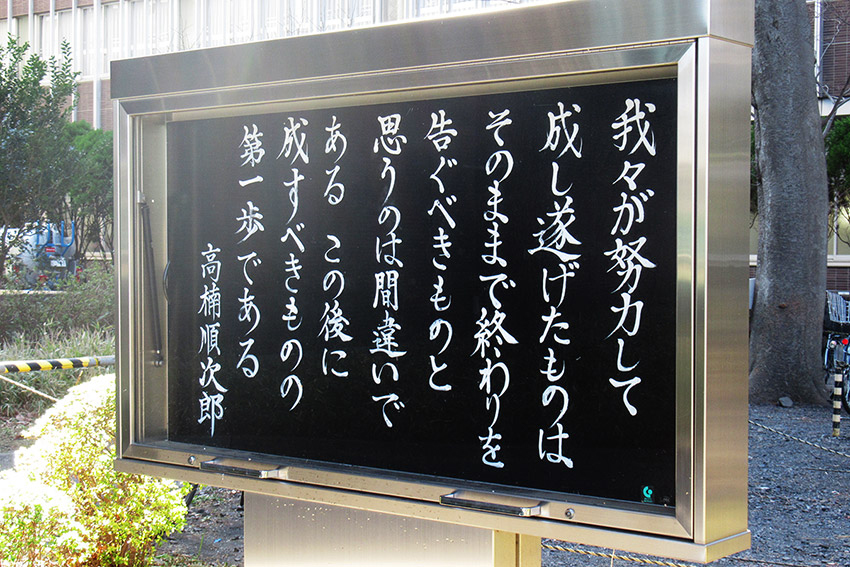 我々が努力して
成し遂げたものは
そのままで終わりを
告ぐべきものと
思うのは間違いで
ある この後に
成すべきものの
第一歩である
高楠順次郎